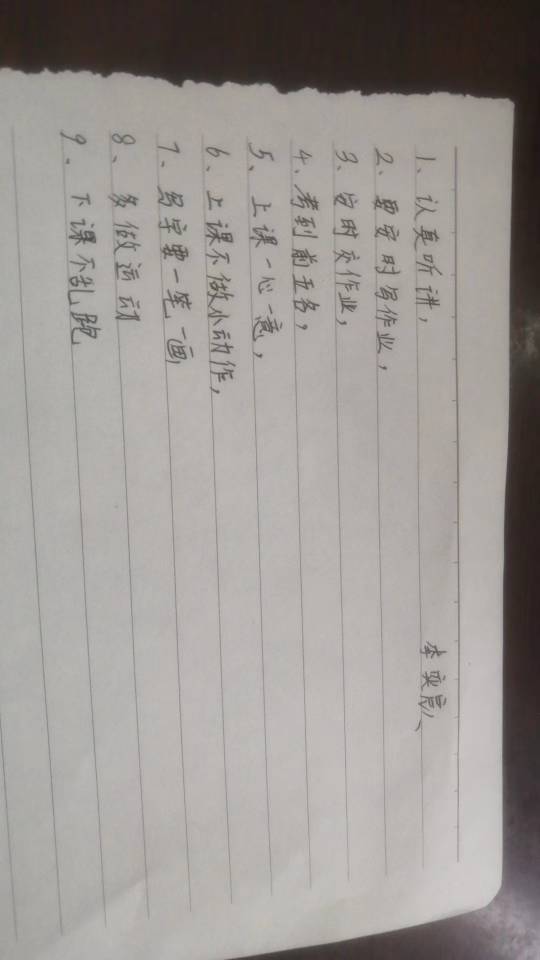 1、认真听讲，
2、要安时写作业，
3、安时交作业，
4、考到前五名，
5、上课一心一意，
6、上课不做小动作，
7、写字要一笔一画
8、多做运动
9、下课不乱跑